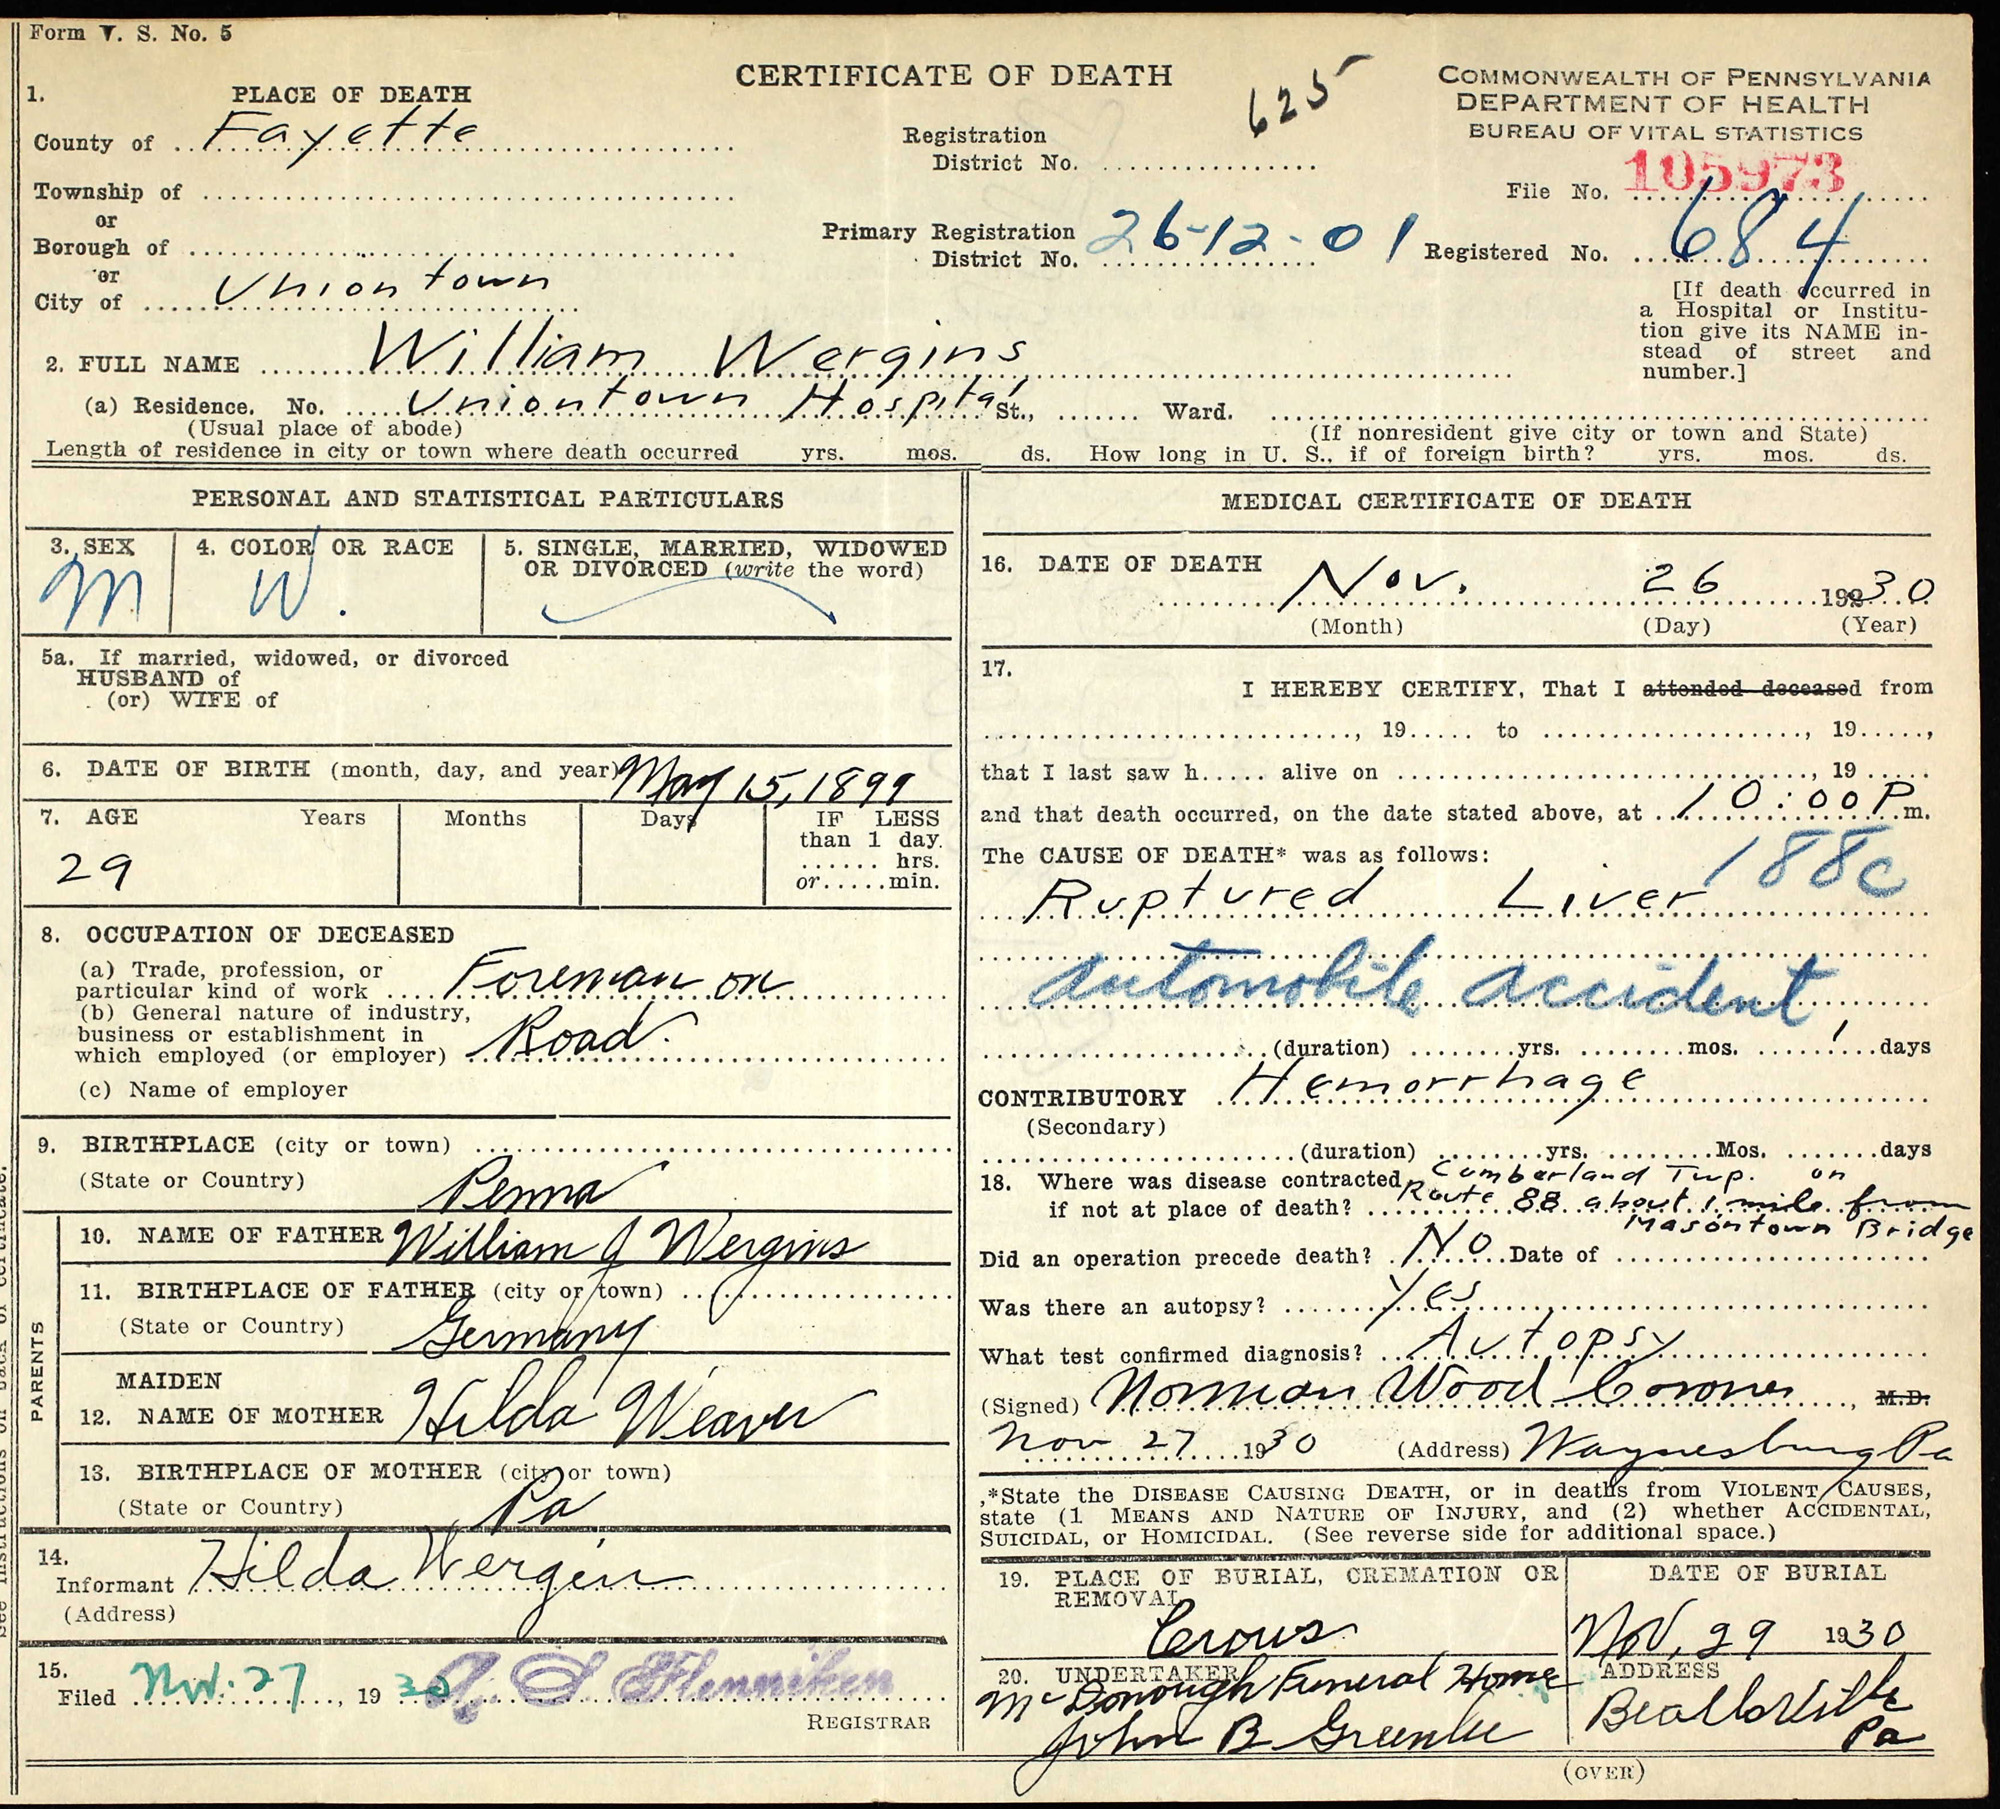 Form V. S. No. 5
CERTIFICATE OF DEATH
COMMONWEALTH OF PENNSYLVANIA
DEPARTMENT OF HEALTH
BUREAU OF VITAL STATISTICS
1. PLACE OF DEATH
County of Fayette
Registration District No. 625
File No. 105973
Township of
or
Borough of
or
City of Uniontown
Primary Registration District No. 26-12-01
Registered No. 684
[If death occurred in
a Hospital or Institu-
tion give its NAME in-
stead of street and
number.]
2. FULL NAME William Wergins
(a) Residence. No. Uniontown Hospital St., Ward.
(Usual place of abode) (If nonresident give city or town and State)
Length of residence in city or town where death occurred yrs. mos. ds. How long in U. S., if of foreign birth? yrs. mos. ds.
PERSONAL AND STATISTICAL PARTICULARS
3. SEX M
4. COLOR OR RACE W.
5. SINGLE, MARRIED, WIDOWED
OR DIVORCED (write the word)
5a. If married, widowed, or divorced
HUSBAND of
(or) WIFE of
6. DATE OF BIRTH (month, day, and year) May 15, 1899
7. AGE Years Months Days IF LESS
than 1 day.
hrs.
or min.
29
8. OCCUPATION OF DECEASED
(a) Trade, profession, or
particular kind of work Foreman on
(b) General nature of industry,
business or establishment in
which employed (or employer) Road.
(c) Name of employer
9. BIRTHPLACE (city or town)
(State or Country) Penna
PARENTS
10. NAME OF FATHER William J Wergins
11. BIRTHPLACE OF FATHER (city or town)
(State or Country) Germany
MAIDEN
12. NAME OF MOTHER Hilda Weaver
13. BIRTHPLACE OF MOTHER (city or town)
(State or Country) Pa
14. Informant Hilda Wergin
(Address)
15. Filed Nov. 27, 1930 A. S Flenniken
REGISTRAR
MEDICAL CERTIFICATE OF DEATH
16. DATE OF DEATH
Nov. 26 19230
(Month) (Day) (Year)
17. I HEREBY CERTIFY, That I attended deceased from
, 19 to , 19 ,
that I last saw h alive on , 19
and that death occurred, on the date stated above, at 10:00 P m.
The CAUSE OF DEATH* was as follows: 188c
Ruptured Liver
automobile accident
(duration) yrs. mos. 1 days
CONTRIBUTORY Hemorrhage
(Secondary)
(duration) yrs. Mos. days
18. Where was disease contracted Cumberland Twp. on
if not at place of death? Route 88 about 1 mile from
Masontown Bridge
Did an operation precede death? No Date of
Was there an autopsy? Yes
What test confirmed diagnosis? Autopsy
(Signed) Norman Wood Coroner, M.D.
Nov 27 1930 (Address) Waynesburg Pa
*State the DISEASE CAUSING DEATH, or in deaths from VIOLENT CAUSES,
state (1 MEANS AND NATURE OF INJURY, and (2) whether ACCIDENTAL,
SUICIDAL, or HOMICIDAL. (See reverse side for additional space.)
19. PLACE OF BURIAL, CREMATION OR
REMOVAL
Crows
DATE OF BURIAL
Nov. 29 1930
20. UNDERTAKER
McDonough Funeral Home
John B Greenlee
ADDRESS
Beallsville
Pa
(OVER)